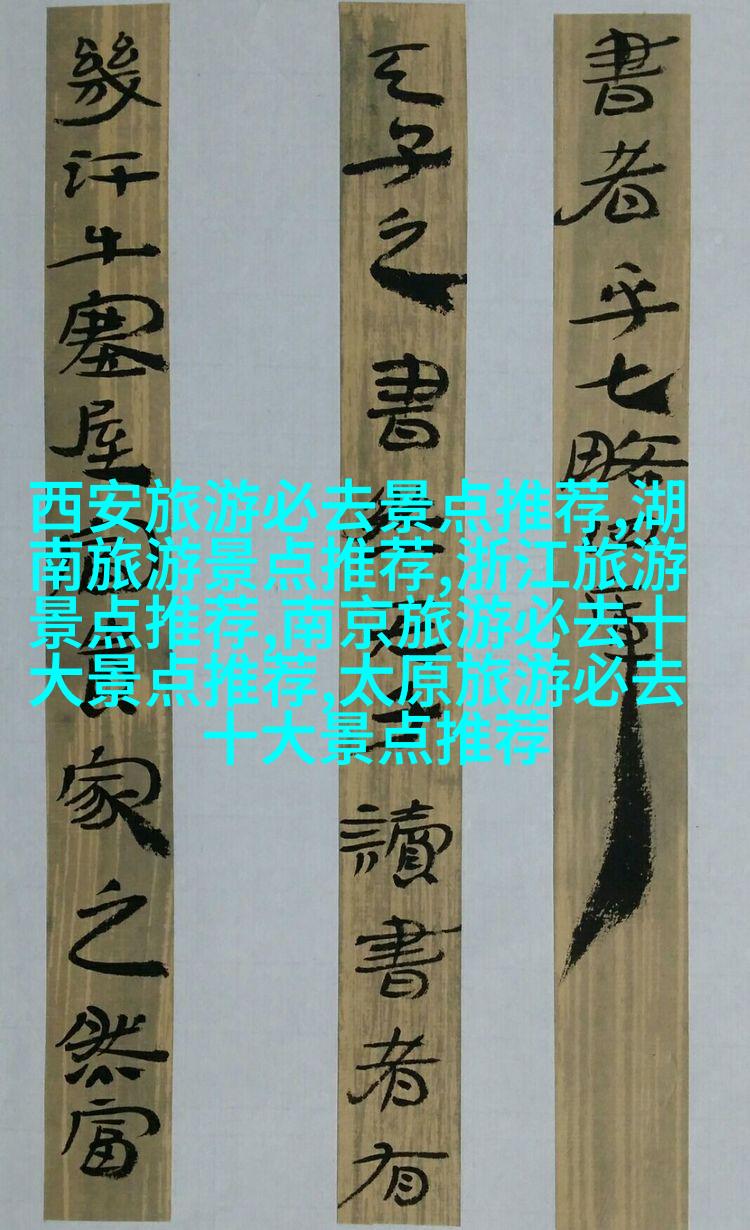 西安旅游必去景点推荐,湖
南旅游景点推荐,浙江旅游
景点推荐,南京旅游必去十
大景点推荐,太原旅游必去
十大景点推荐
書者乎七略
天子之書讀書者有
幾汗牛塞屋家之然富